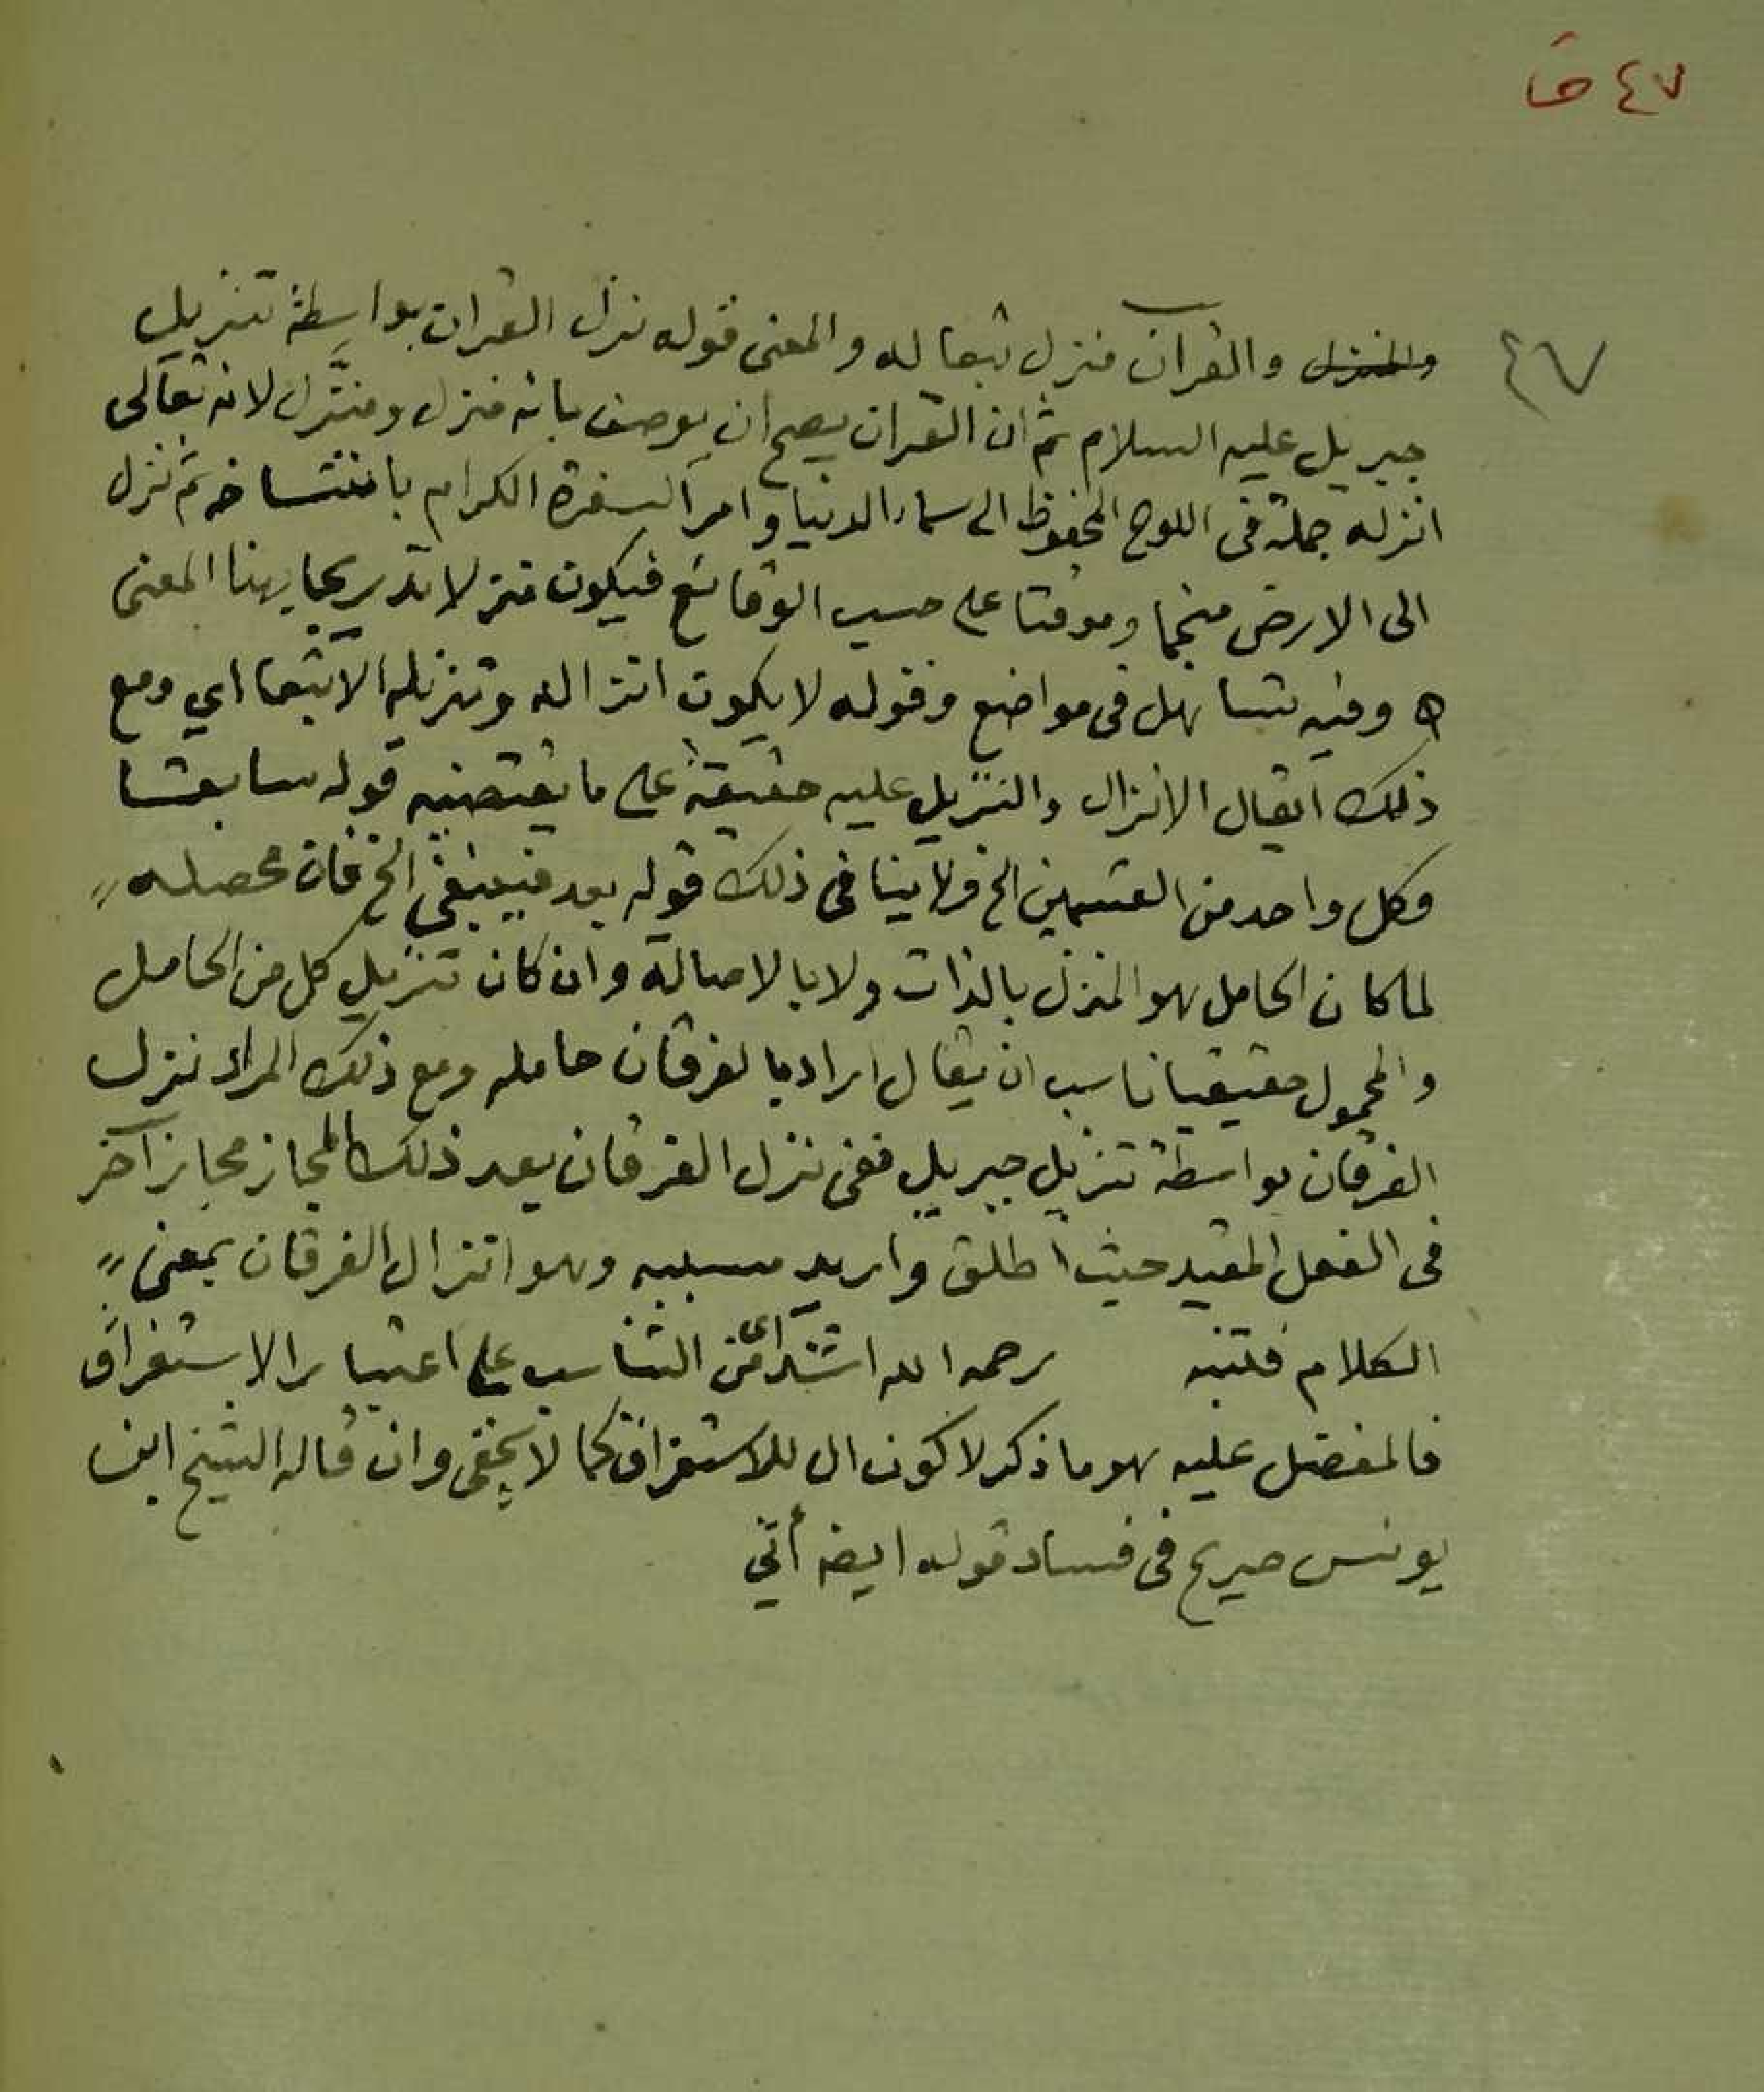 ٤٧ ق
٤٧
والمنزل والقرآن منزل تبعا له والمعنى قوله نزل القران بواسطة تنزيل
جبريل عليه السلام ثم ان القران يصح ان يوصف بانه منزل ومنَزَّل لانه تعالى
انزله جملة فى اللوح المحفوظ الى سماء الدنيا وامر السفرة الكرام بانتساخه ثم نزل
الى الارض منجما وموقتا على حسب الوقائع فيكون منزلا تدريجا بهذا المعنى
اه وفيه تساهل فى مواضع وقوله لا يكون انزاله وتنزيله الا تبعا اي ومع
ذلك ايقال الانزال والتنزيل عليه حقيقة على ما يقتضيه قوله سابقا
وكل واحد من القسمين الخ ولا ينافى ذلك قوله بعد فينبغى الخ فان محصله
لما كان الحامل هو المنزل بالذات ولا بالاصالة وان كان تنزيل كل من الحامل
والمحمول حقيقيا ناسب ان يقال اراد بالفرقان حامله ومع ذلك المراد نزل
الفرقان بواسطة تنزيل جبريل ففى نزل الفرقان بعد ذلك المجاز مجاز آخر
فى الفعل المقيد حيث اطلق واريد مسببه وهو انزال الفرقان بمعنى
الكلام فتنبه رحمه الله اشد اى من التناسب على اعتبار الاستغراق
فالمفضل عليه هو ما ذكر لا كون ال للاستغراق كما لا يخفى وان قاله الشيخ ابن
يونس صريح فى فساد قوله ايضا أتي